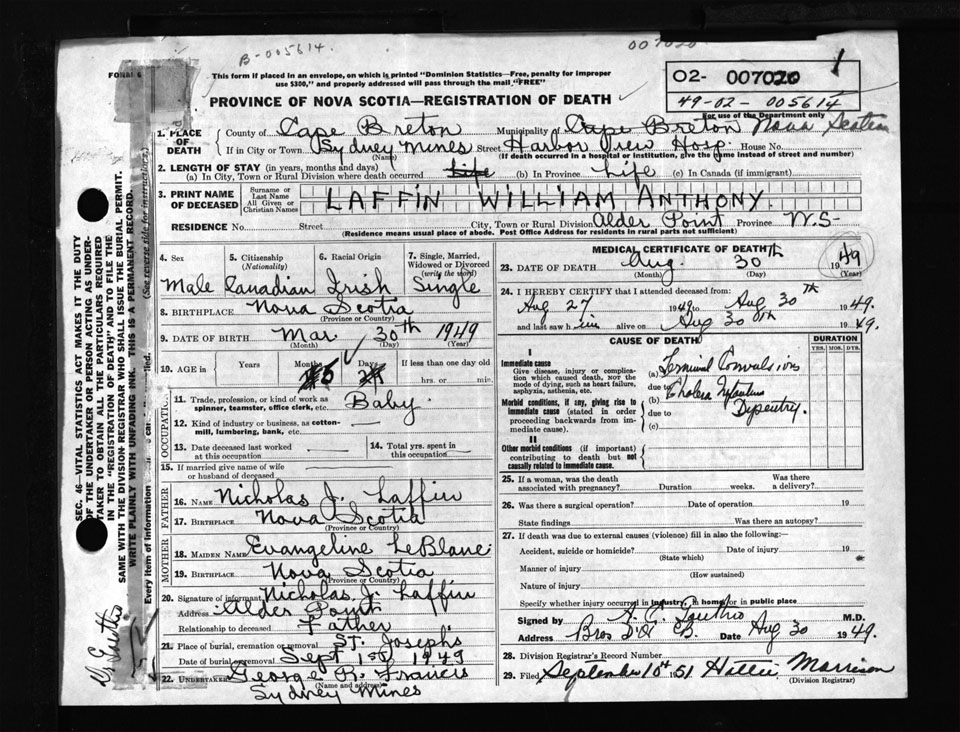 B-005614.
007020
FORM 6
This form if placed in an envelope, on which is printed "Dominion Statistics—Free, penalty for improper
use $300," and properly addressed will pass through the mail "FREE"
PROVINCE OF NOVA SCOTIA—REGISTRATION OF DEATH
02- 007020
1
49-02- 005614
For use of the Department only
1. PLACE OF DEATH
County of Cape Breton Municipality of Cape Breton Nova Scotia
If in City or Town Sydney Mines Street Harbor View Hosp. House No.
(Name) (If death occurred in a hospital or institution, give the name instead of street and number)
2. LENGTH OF STAY (in years, months and days)
(a) In City, Town or Rural Division where death occurred Life (b) In Province Life (c) In Canada (if immigrant)
3. PRINT NAME OF DECEASED
Surname or Last Name
All Given or Christian Names
LAFFIN WILLIAM ANTHONY.
RESIDENCE No. Street City, Town or Rural Division Alder Point Province N.S-
(Residence means usual place of abode. Post Office Address for residents in rural parts not sufficient)
4. Sex
Male
5. Citizenship (Nationality)
Canadian
6. Racial Origin
Irish
7. Single, Married, Widowed or Divorced (write the word)
Single
8. BIRTHPLACE Nova Scotia
(Province or Country)
9. DATE OF BIRTH Mar. 30th 1949
(Month) (Day) (Year)
10. AGE in Years Months 5 Days If less than one day old
hrs. or min.
OCCUPATION
11. Trade, profession, or kind of work as
spinner, teamster, office clerk, etc. Baby
12. Kind of industry or business, as cotton-
mill, lumbering, bank, etc. —
13. Date deceased last worked
at this occupation —
14. Total yrs. spent in
this occupation —
15. If married give name of wife
or husband of deceased
FATHER
16. NAME Nicholas J. Laffin
17. BIRTHPLACE Nova Scotia
(Province or Country)
MOTHER
18. MAIDEN NAME Evangeline LeBlanc
19. BIRTHPLACE Nova Scotia
(Province or Country)
20. Signature of informant Nicholas J. Laffin
Address Alder Point
Relationship to deceased Father
21. Place of burial, cremation or removal St. Josephs
Date of burial or removal Sept 1st 1949
22. UNDERTAKER George R. Francis
(Name and address)
Sydney Mines
MEDICAL CERTIFICATE OF DEATH
23. DATE OF DEATH Aug. 30th 1949
(Month) (Day) (Year)
24. I HEREBY CERTIFY that I attended deceased from:
Aug 27 1949 to Aug 30th 1949.
and last saw him alive on Aug 30th 1949.
CAUSE OF DEATH
DURATION
YRS. MOS. DYS.
I
Immediate cause
Give disease, injury or complica-
tion which caused death, not the
mode of dying, such as heart failure,
asphyxia, asthenia, etc.
(a) Terminal Convulsions
due to
Morbid conditions, if any, giving rise to
immediate cause (stated in order
proceeding backwards from im-
mediate cause).
(b) Cholera Infantum
due to Dysentry.
(c)
II
Other morbid conditions (if important)
contributing to death but not
causally related to immediate cause.
25. If a woman, was the death
associated with pregnancy? Duration weeks. Was there
a delivery?
26. Was there a surgical operation? Date of operation 19
State findings Was there an autopsy?
27. If death was due to external causes (violence) fill in also the following:—
Accident, suicide or homicide? Date of injury 19
(State which)
Manner of injury
(How sustained)
Nature of injury
Specify whether injury occurred in industry, in home, or in public place
Signed by M.D.
Address Date Aug 30 1949.
28. Division Registrar's Record Number
29. Filed September 10th 1951 Hattie Morrison
(Division Registrar)
SEC. 46—VITAL STATISTICS ACT MAKES IT THE DUTY
OF THE UNDERTAKER OR PERSON ACTING AS UNDER-
TAKER TO OBTAIN ALL THE PARTICULARS REQUIRED
IN THE "REGISTRATION OF DEATH" AND TO FILE THE
SAME WITH THE DIVISION REGISTRAR WHO SHALL ISSUE THE BURIAL PERMIT.
WRITE PLAINLY WITH UNFADING INK. THIS IS A PERMANENT RECORD.
Every item of information
(See reverse side for instructions.)